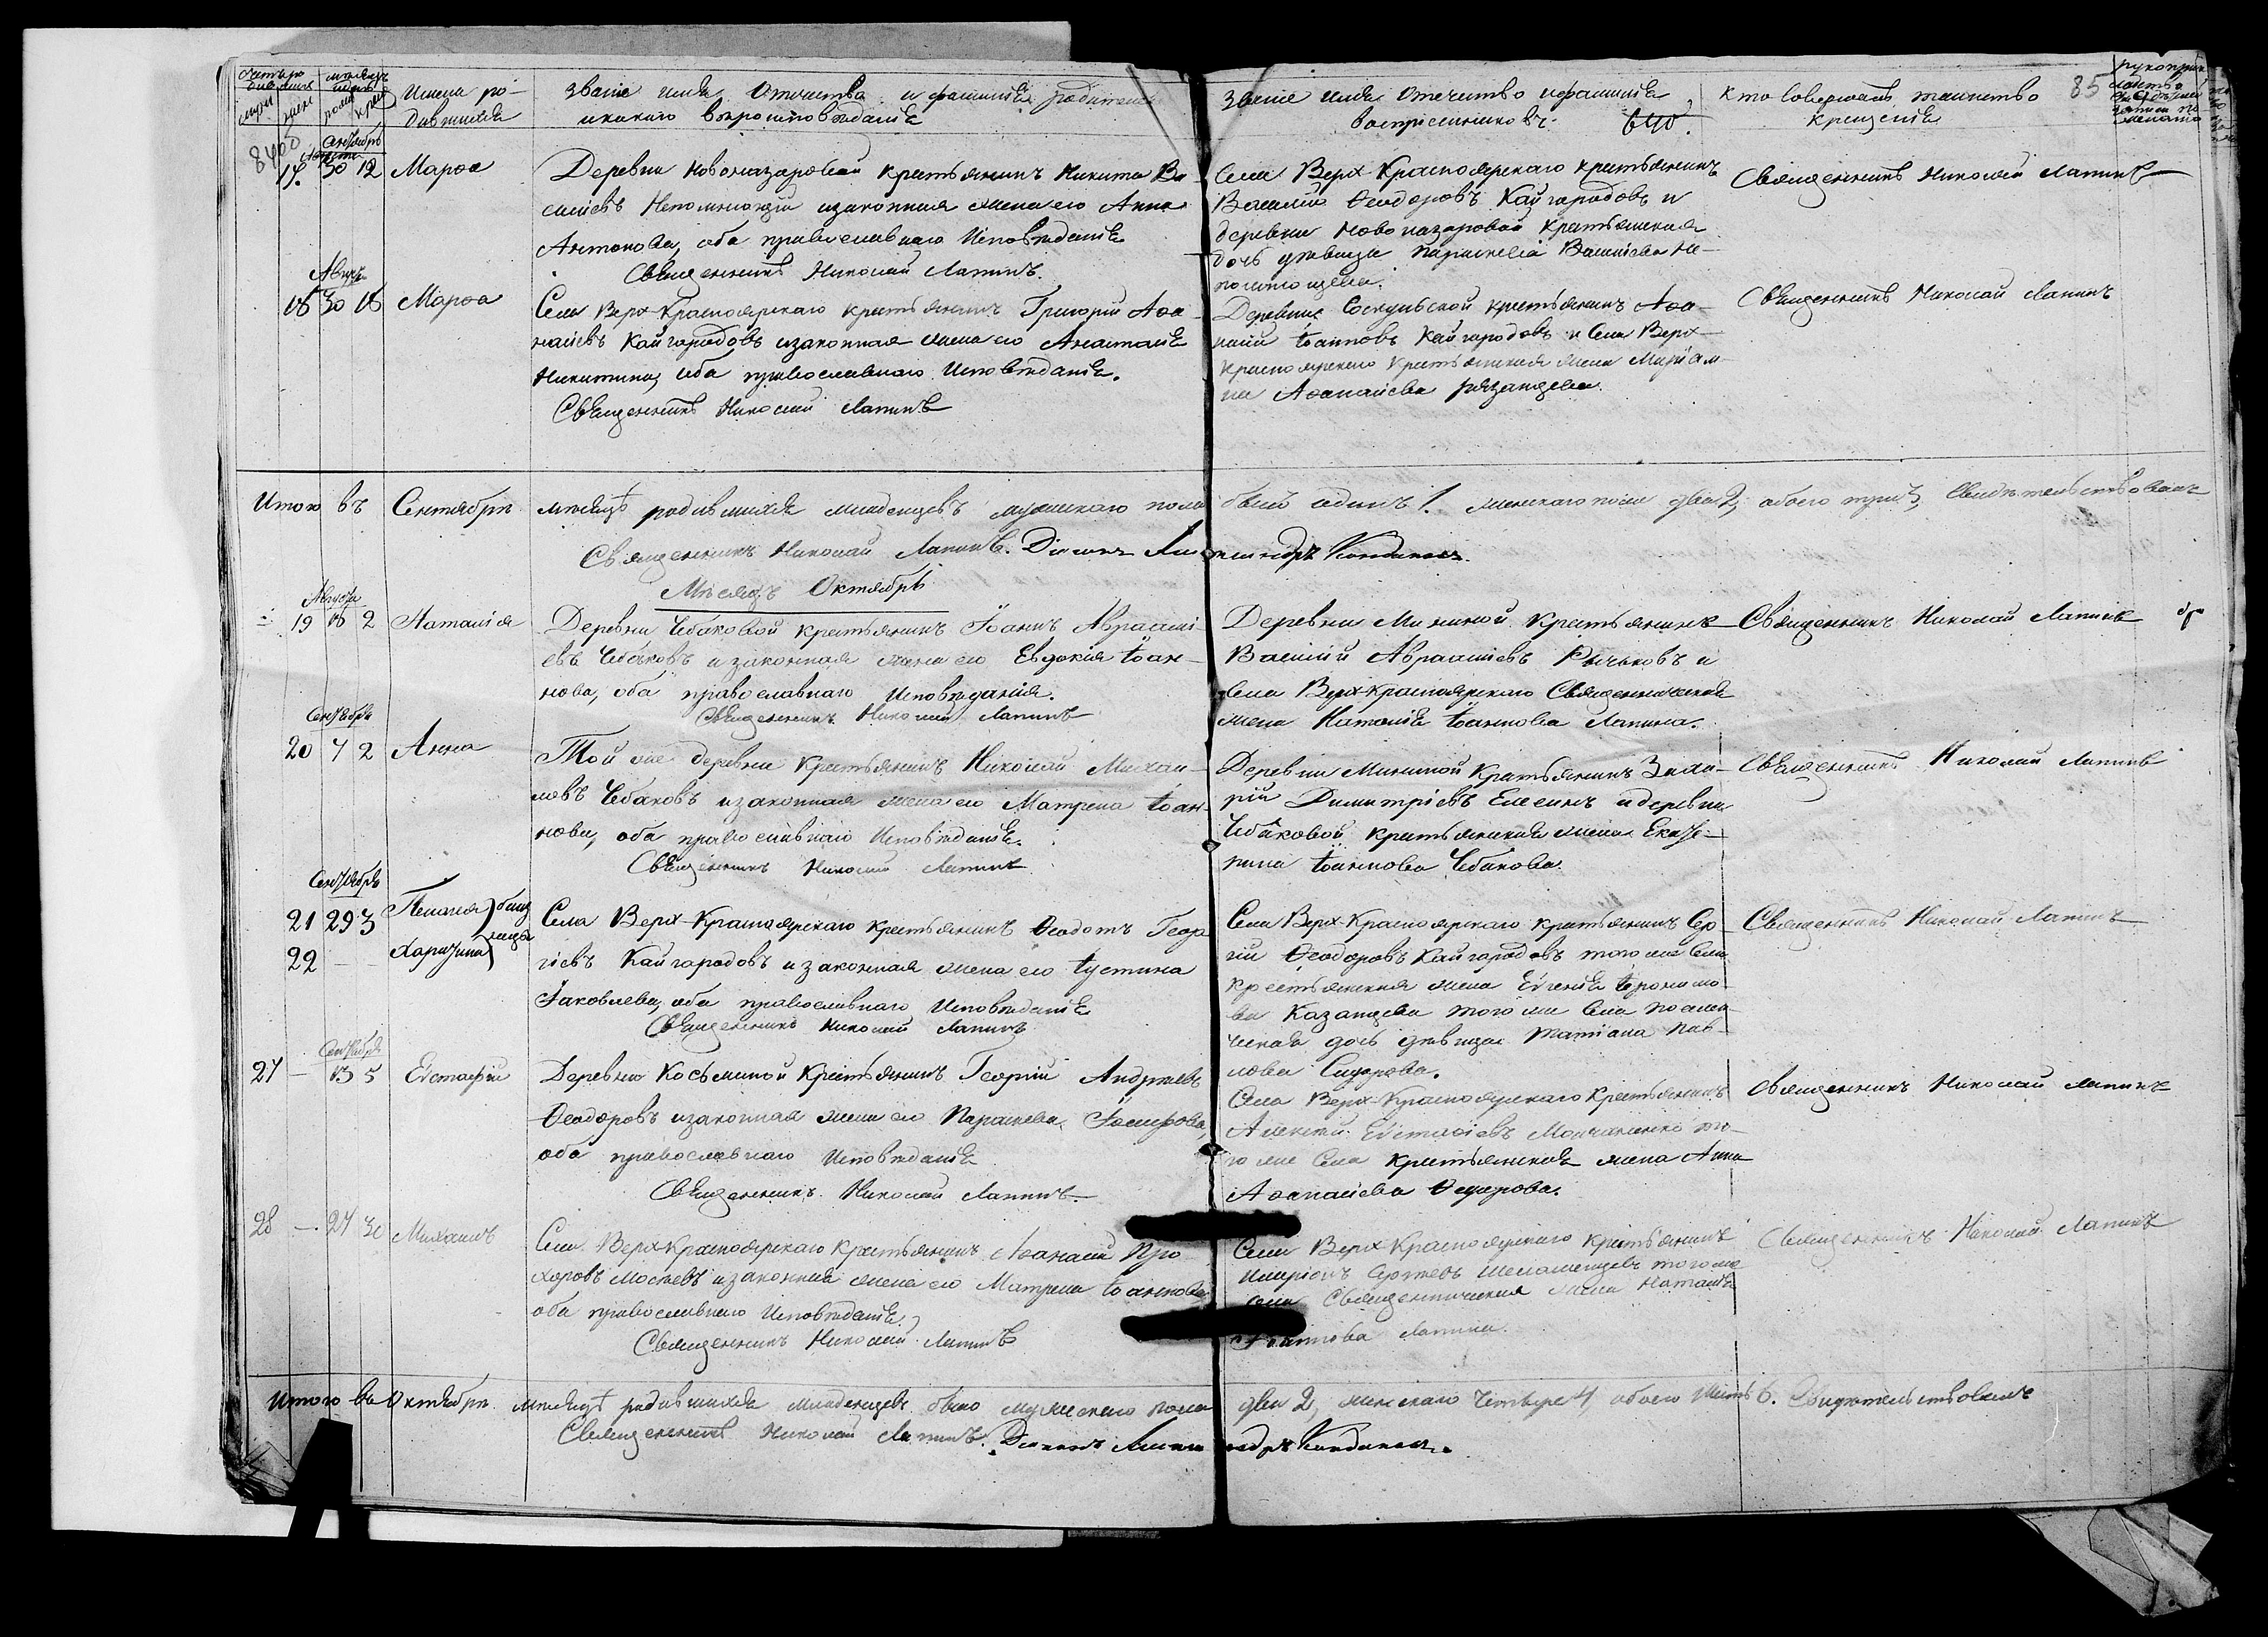 Имена ро-
дившихся
званіе имя отечество и фамилія родителей
и какого вѣроисповѣданія
Званіе имя отечество и фамилія
воспріемниковъ
Кто совершалъ таинство
крещенія
85
Августа
17. 30 12 Марѳа
Деревни Новоназаровой крестьянинъ Никита Ва-
силіевъ Непомнющій и законная жена его Анна
Антонова, оба православнаго Исповѣданія
Священникъ Николай Лапинъ.
Села Верх-Красноярскаго крестьянинъ
Василій Ѳеодоровъ Кайгородовъ и
деревни Новоназаровой крестьянская
дочь дѣвица Параскевія Василіева Не-
Священникъ Николай Лапинъ
Авгус
18 30 18 Марѳа
Села Верх-Красноярскаго крестьянинъ Григорій Аѳа-
насіевъ Кайгородовъ и законная жена его Анастасія
Никитина, оба православнаго Исповѣданія.
Священникъ Николай Лапинъ
крестьянинъ Аѳа-
насій Іоанновъ Кайгородовъ и Села Верх-
красноярскаго крестьянская жена Маріам-
на Аѳанасіева Рязанцева.
Священникъ Николай Лапинъ
Итого въ Сентябрѣ мѣсяцѣ родившихся младенцевъ мужескаго пола былъ одинъ 1. женскаго пола два 2, обоего три 3, Свидѣтельствовалъ
Священникъ Николай Лапинъ. Діаконъ Александръ
Мѣсяцъ Октябрь
Августа
19 18 2 Наталія
Деревни Чебаковой крестьянинъ Іоаннъ Авраамі-
евъ Чебаковъ и законная жена его Евдокія Іоан-
нова, оба православнаго Исповѣданія.
Священникъ Николай Лапинъ
Деревни Мининой Крестьянинъ
Василій Авраамиевъ Рычьковъ и
Села Верх-Красноярскаго Священническая
жена Наталія Іоаннова Лапина.
Священникъ Николай Лапинъ
Сентября
20 7 2 Анна
Той же деревни Крестьянинъ Николай Михаи-
ловъ Чебаковъ и законная жена его Матрена Іоан-
нова, оба православнаго Исповѣданія.
Священникъ Николай Лапинъ
Деревни Мининой Крестьянинъ Заха-
рій Димитріевъ Елесинъ и деревни
Чебаковой крестьянская жена Екате-
рина Іоаннова Чебакова.
Священникъ Николай Лапинъ
Сентября
21 29 3 Пелагея } близ
22 — Харитина } нецы
Села Верх-Красноярскаго крестьянинъ Ѳеодотъ Геор
гіевъ Кайгородовъ и законная жена его Іустина
Іаковлева, оба православнаго Исповѣданія
Священникъ Николай Лапинъ
Села Верх-Красноярскаго крестьянинъ Сер-
гій Ѳеодоровъ Кайгородовъ того же Села
крестьянская жена Евгенія
Казанцева того же Села
ческая дочь дѣвица Татіана Пав-
лова Сидорова.
Священникъ Николай Лапинъ
Сентября
27 — 13 5 Евстафій
Деревни Косьминой Крестьянинъ Георгій Андреевъ
Ѳеодоровъ и законная жена его Параскева
оба православнаго Исповѣданія
Священникъ Николай Лапинъ
Села Верх-Красноярскаго Крестьянинъ
Алексѣй Евстафіевъ Молчаненко то-
го же Села Крестьянская жена Анна
Аѳанасіева Ѳедорова.
Священникъ Николай Лапинъ
28 — 27 30 Михаилъ
Села Верх-Красноярскаго Крестьянинъ Аѳанасій Про
хоровъ и законная жена его Матрена Іоаннова
оба православнаго Исповѣданія.
Священникъ Николай Лапинъ
Села Верх-Красноярскаго Крестьянинъ
Иларіонъ Сергѣевъ того же
села Священническая жена Наталія
Іоаннова Лапина.
Священникъ Николай Лапинъ
Итого въ Октябрѣ мѣсяцѣ родившихся младенцевъ было мужескаго пола два 2, женскаго четыре 4, обоего шесть 6. Свидѣтельствовалъ
Священникъ Николай Лапинъ. Діаконъ Александръ